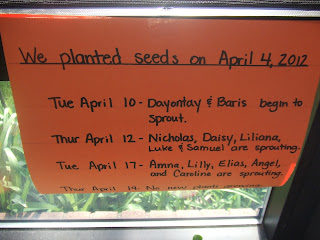 We planted seeds on April 4, 2012
Tue April 10 - Dayontay & Baris begin to
sprout.
Thur April 12 - Nicholas, Daisy, Liliana,
Luke & Samuel are sprouting.
Tue April 17 - Amna, Lilly, Elias, Angel,
and Caroline are sprouting.
Thur April 19 No new plants growing